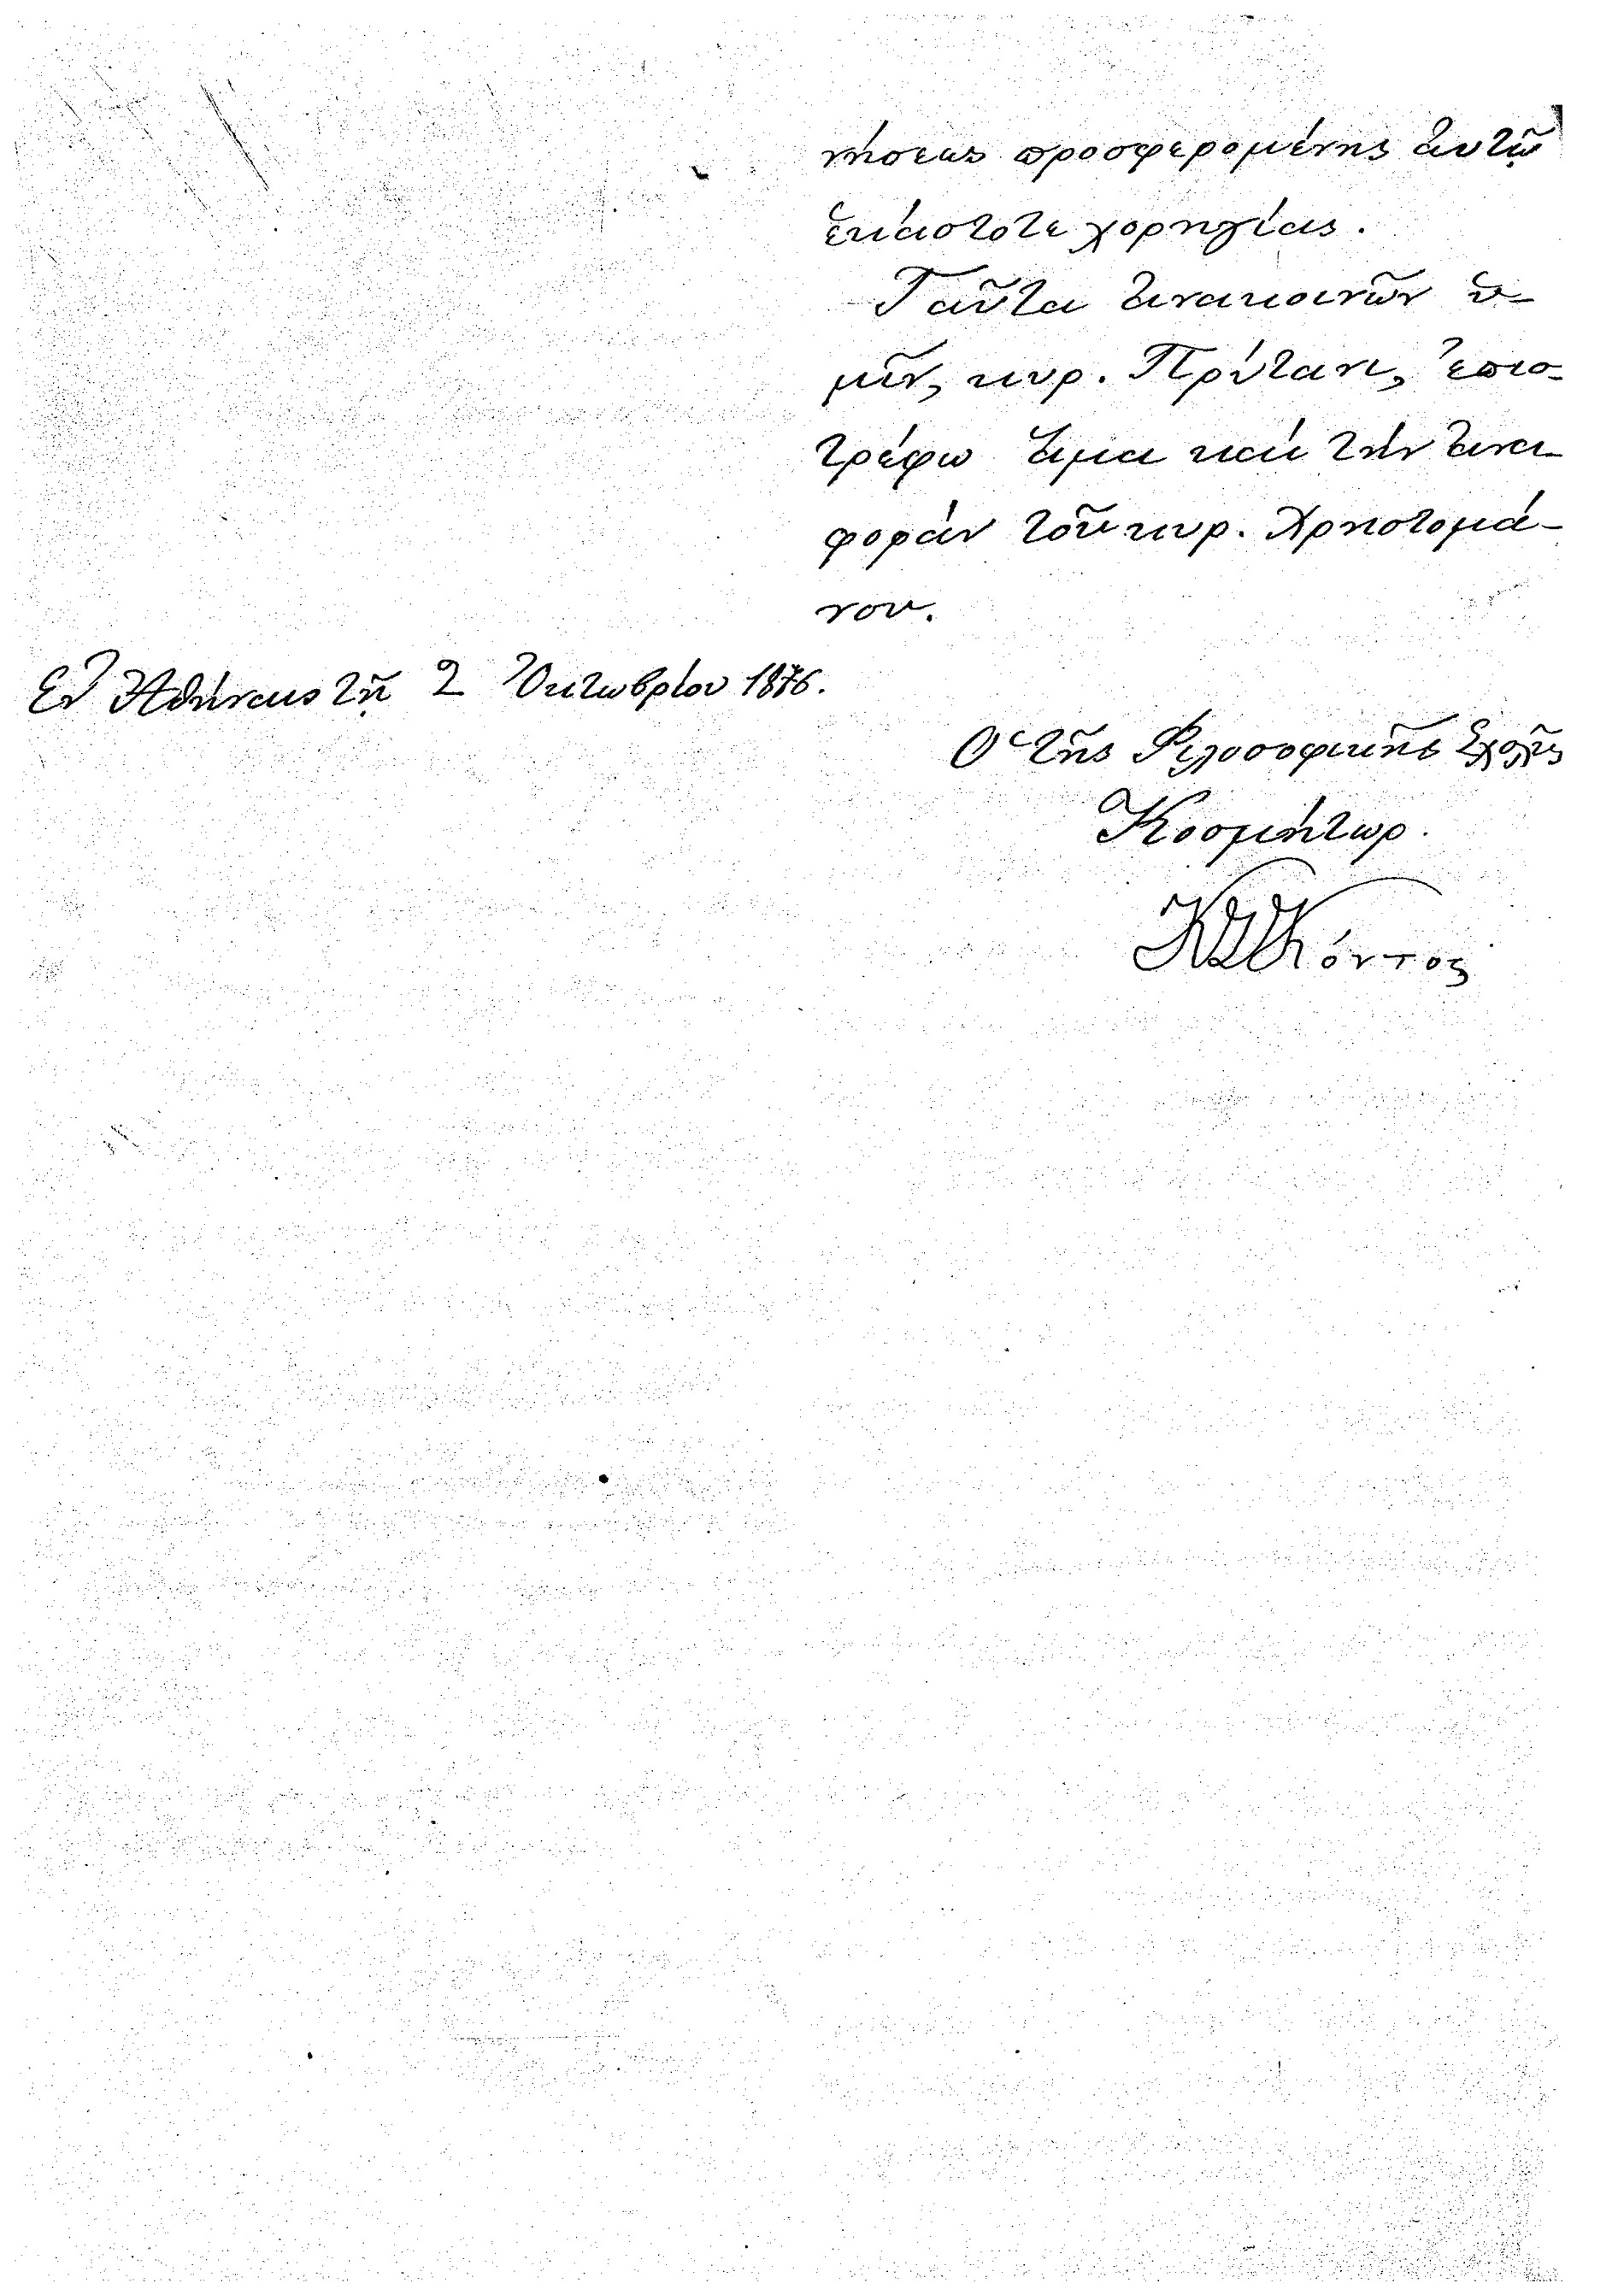 νήσεως προσφερομένης αὐτῷ
ἑκάστοτε χορηγίας.
Ταῦτα ἀνακοινῶν ὑ-
μῖν, κυρ. Πρύτανι, ἐπισ-
τρέφω ἅμα καὶ τὴν ἀνα-
φορὰν τοῦ κυρ. Χρηστομά-
νου.
Ἐν Ἀθήναις τῇ 2 Ὀκτωβρίου 1876.
Ὁ τῆς Φιλοσοφικῆς Σχολῆς
Κοσμήτωρ.
Κ Σ Κόντος